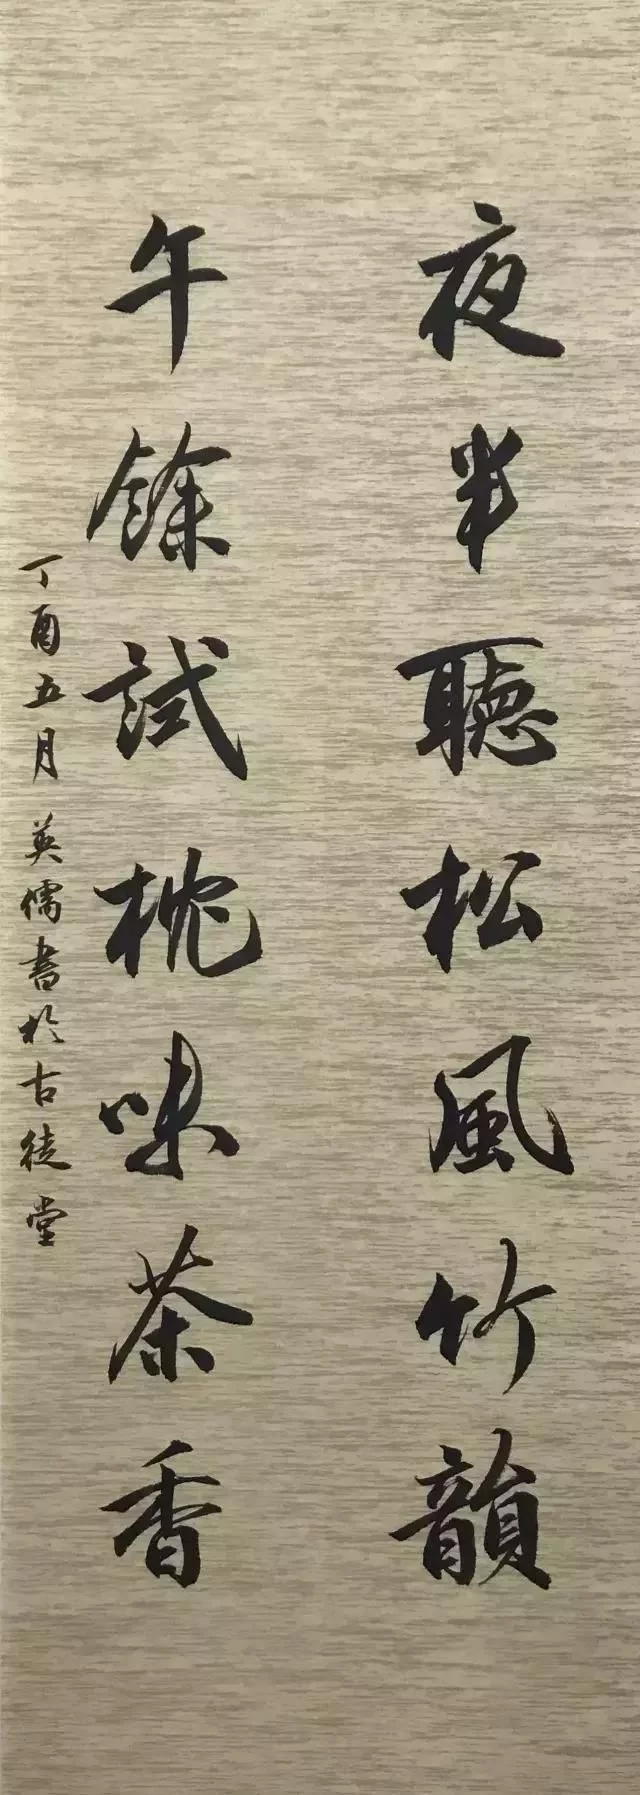 夜半聽松風竹韻
午餘試枕味茶香
丁酉五月英儒書於古徒堂